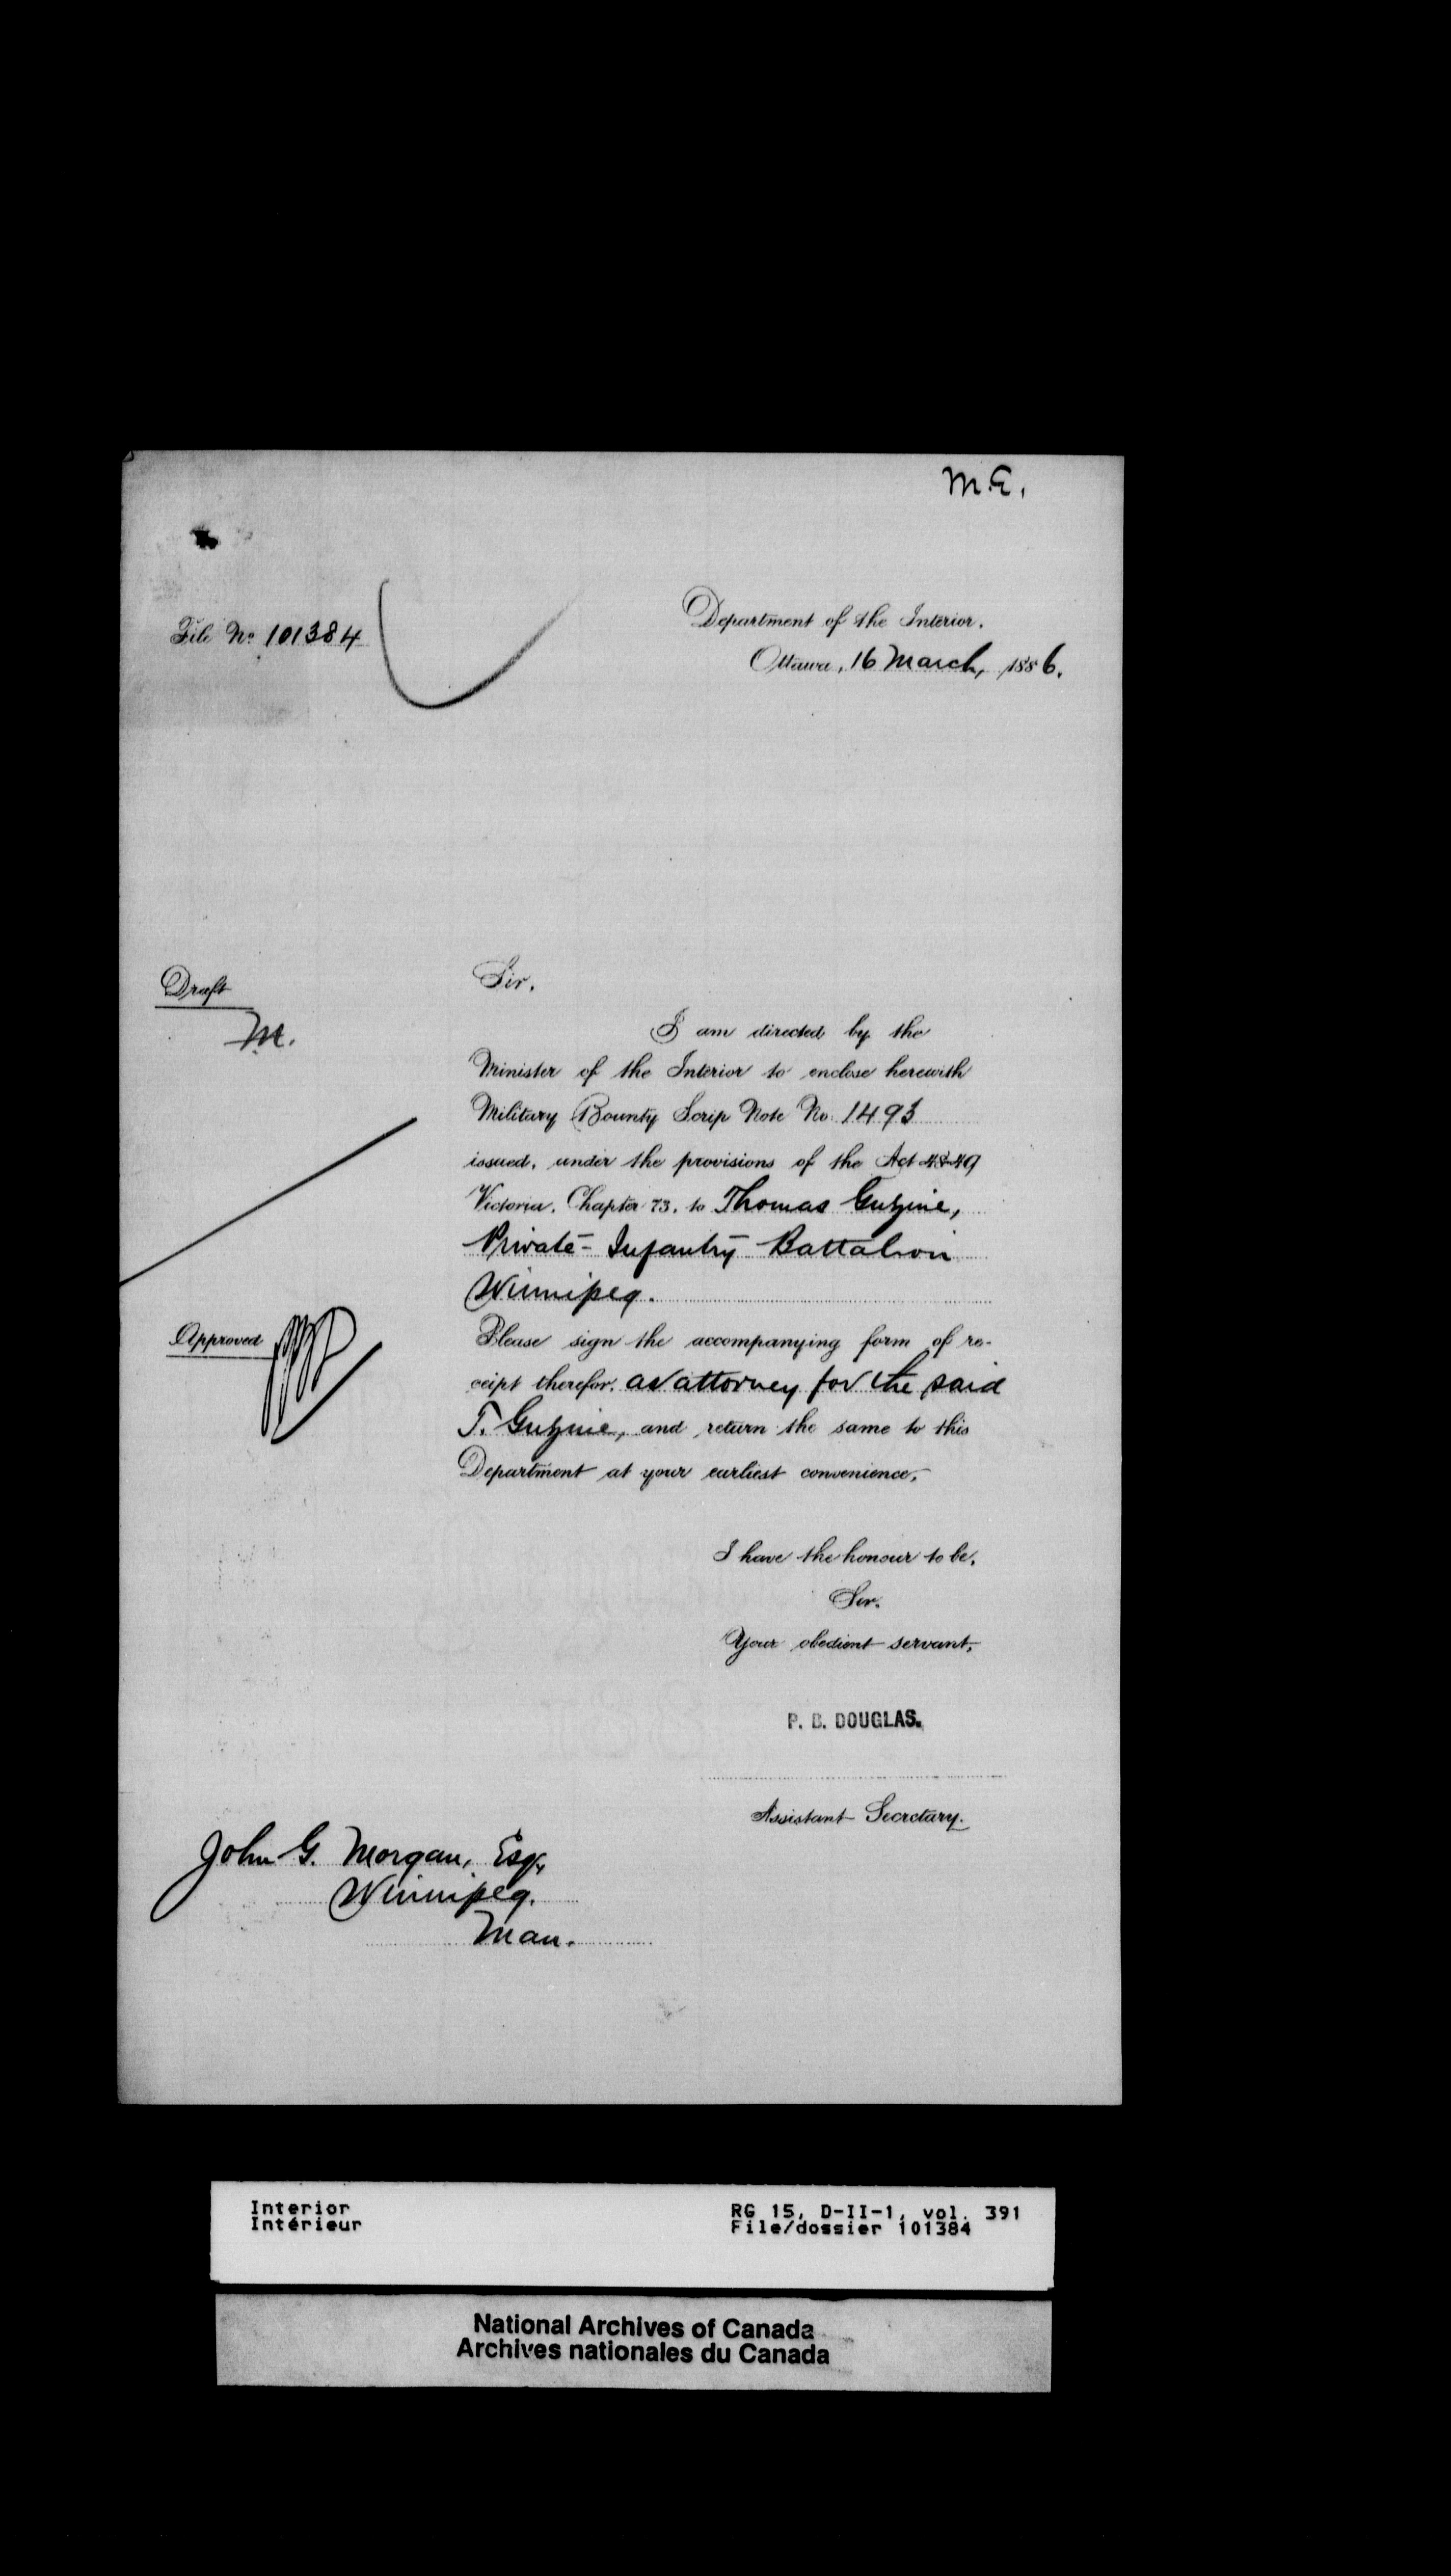 M.E.
File No. 101384
Department of the Interior.
Ottawa, 16 March, 1886.
Draft
M.
Sir,
I am directed by the
Minister of the Interior to enclose herewith
Military Bounty Scrip Note No. 1493
issued, under the provisions of the Act 48-49
Victoria, Chapter 73, to Thomas
Private - Infantry Battalion
Winnipeg.
Approved
Please sign the accompanying form of re-
ceipt therefor, as attorney for the said
T. and return the same to this
Department at your earliest convenience.
I have the honour to be,
Sir,
Your obedient servant,
P. B. DOUGLAS.
Assistant Secretary.
John G. Morgan, Esq,
Winnipeg.
Man.
Interior
Intérieur
RG 15, D-II-1, vol. 391
File/dossier 101384
National Archives of Canada
Archives nationales du Canada